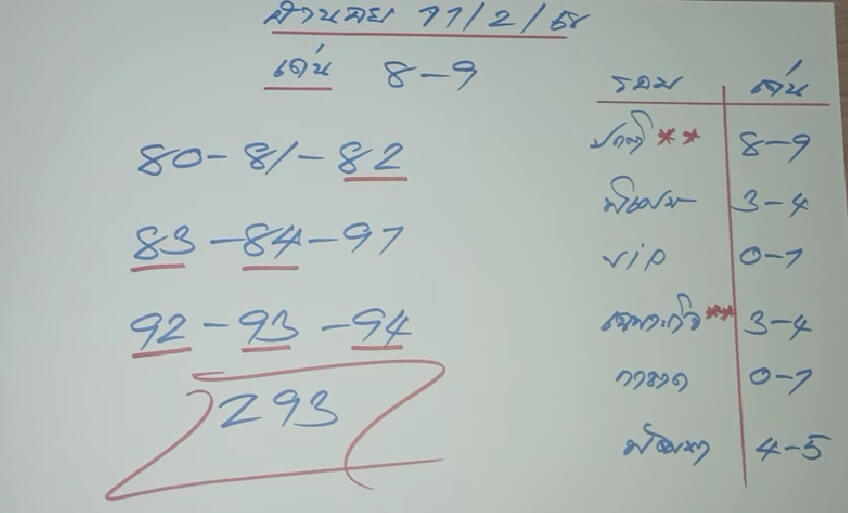 ฮานอย 11/2/68
เด่น 8-9
80-81-82
83-84-91
92-93-94
293
รอบ เด่น
ปกติ ** 8-9
พิเศษ 3-4
VIP 0-1
เฉพาะกิจ ** 3-4
กาชาด 0-1
พัฒนา 4-5